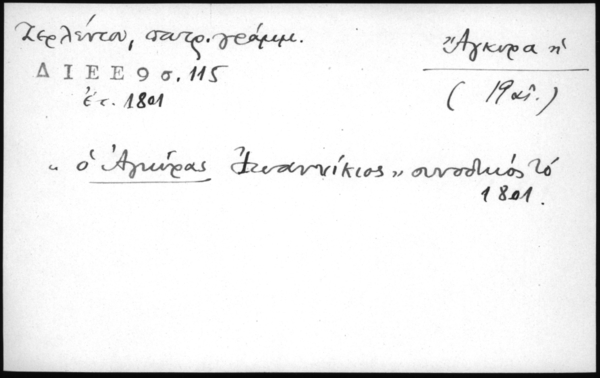 Ζερλέντου, πατρ. γράμμ.
Δ Ι Ε Ε 9 σ. 115
ἔτ. 1801
Ἄγκυρα ἡ
( 19 αἰ. )
« ὁ Ἀγκύρας Ἰωαννίκιος » συνοδικός τό
1801.